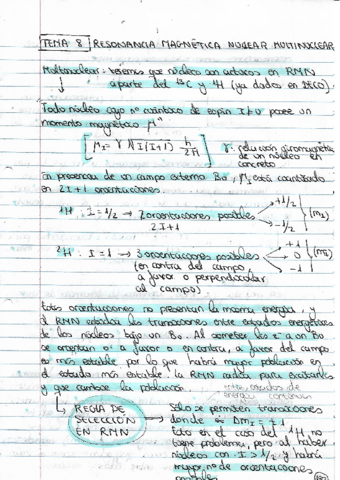 TEMA 8: RESONANCIA MAGNÉTICA NUCLEAR MULTINUCLEAR
Multinuclear: veremos qué núcleos son activos en RMN
aparte del ¹³C y ¹H (ya dados en
Todo núcleo cuyo nº cuántico de espín I≠0 posee un
momento magnético μ
[μI = γ √I(I+1) h/2π]
γ: relación giromagnética
de un núcleo en
concreto
En presencia de un campo externo B₀, μI está cuantizado
en 2I+1 orientaciones
¹H: I=1/2 → 2 orientaciones posibles +1/2 -1/2 (mI)
2I+1
²H: I=1 → 3 orientaciones posibles +1 0 -1 (mI)
(en contra del campo,
a favor o perpendicular
al campo)
Estas orientaciones no presentan la misma energía, y
el RMN estudia las transiciones entre estados energéticos
de los núcleos bajo un B₀. Al someter los a un B₀
se orientan a favor o en contra, a favor del campo
es más estable por lo que habrá mayor población en
el estado más estable, la RMN radia para excitarlos
y que cambie la población.
de
energía continuar
REGLA DE
SELECCIÓN
EN RMN
Sólo se permiten transiciones
donde ΔmI = ±1
Esto en el caso del ¹H no
tiene problemas, pero al haber
núcleos con I > 1/2 y habrá
mayor nº de orientaciones
posibles